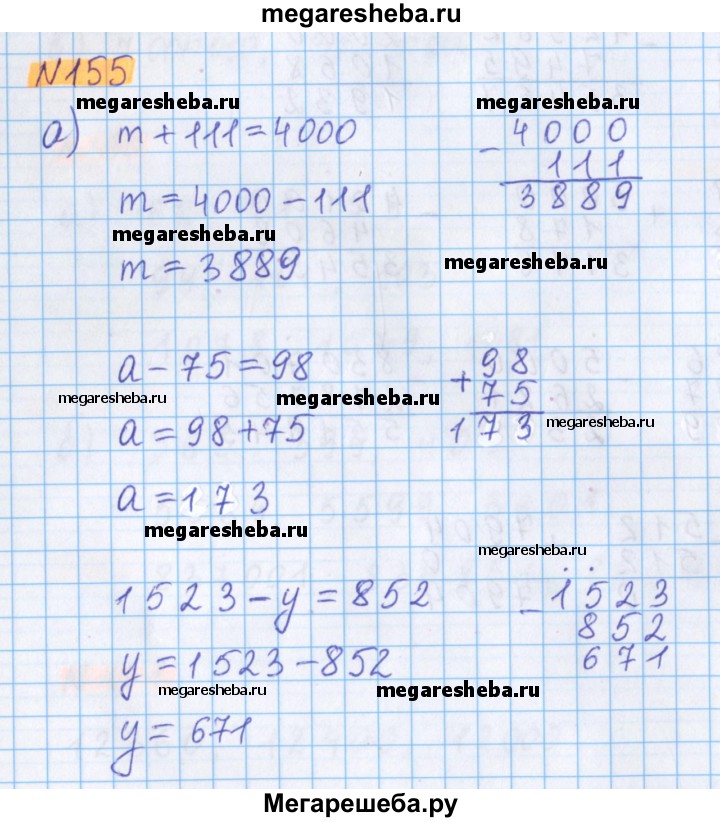 megaresheba.ru
№155
megaresheba.ru megaresheba.ru
а) m + 111 = 4000
m = 4000 - 111
megaresheba.ru
m = 3889
- 4000
111
3889
megaresheba.ru
a - 75 = 98
megaresheba.ru megaresheba.ru
a = 98 + 75
a = 173
+ 98
75
173
megaresheba.ru
megaresheba.ru
megaresheba.ru
1523 - y = 852
y = 1523 - 852
megaresheba.ru megaresheba.ru
y = 671
- 1523
852
671
Мегарешеба.ру